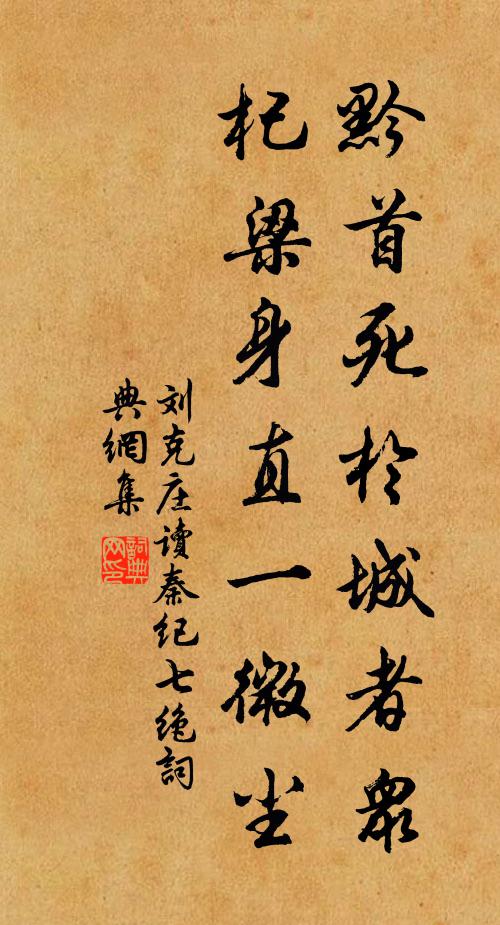 黔首死於城者衆
杞梁身直一微尘
刘克庄读秦纪七绝词
典網集
詞典网印